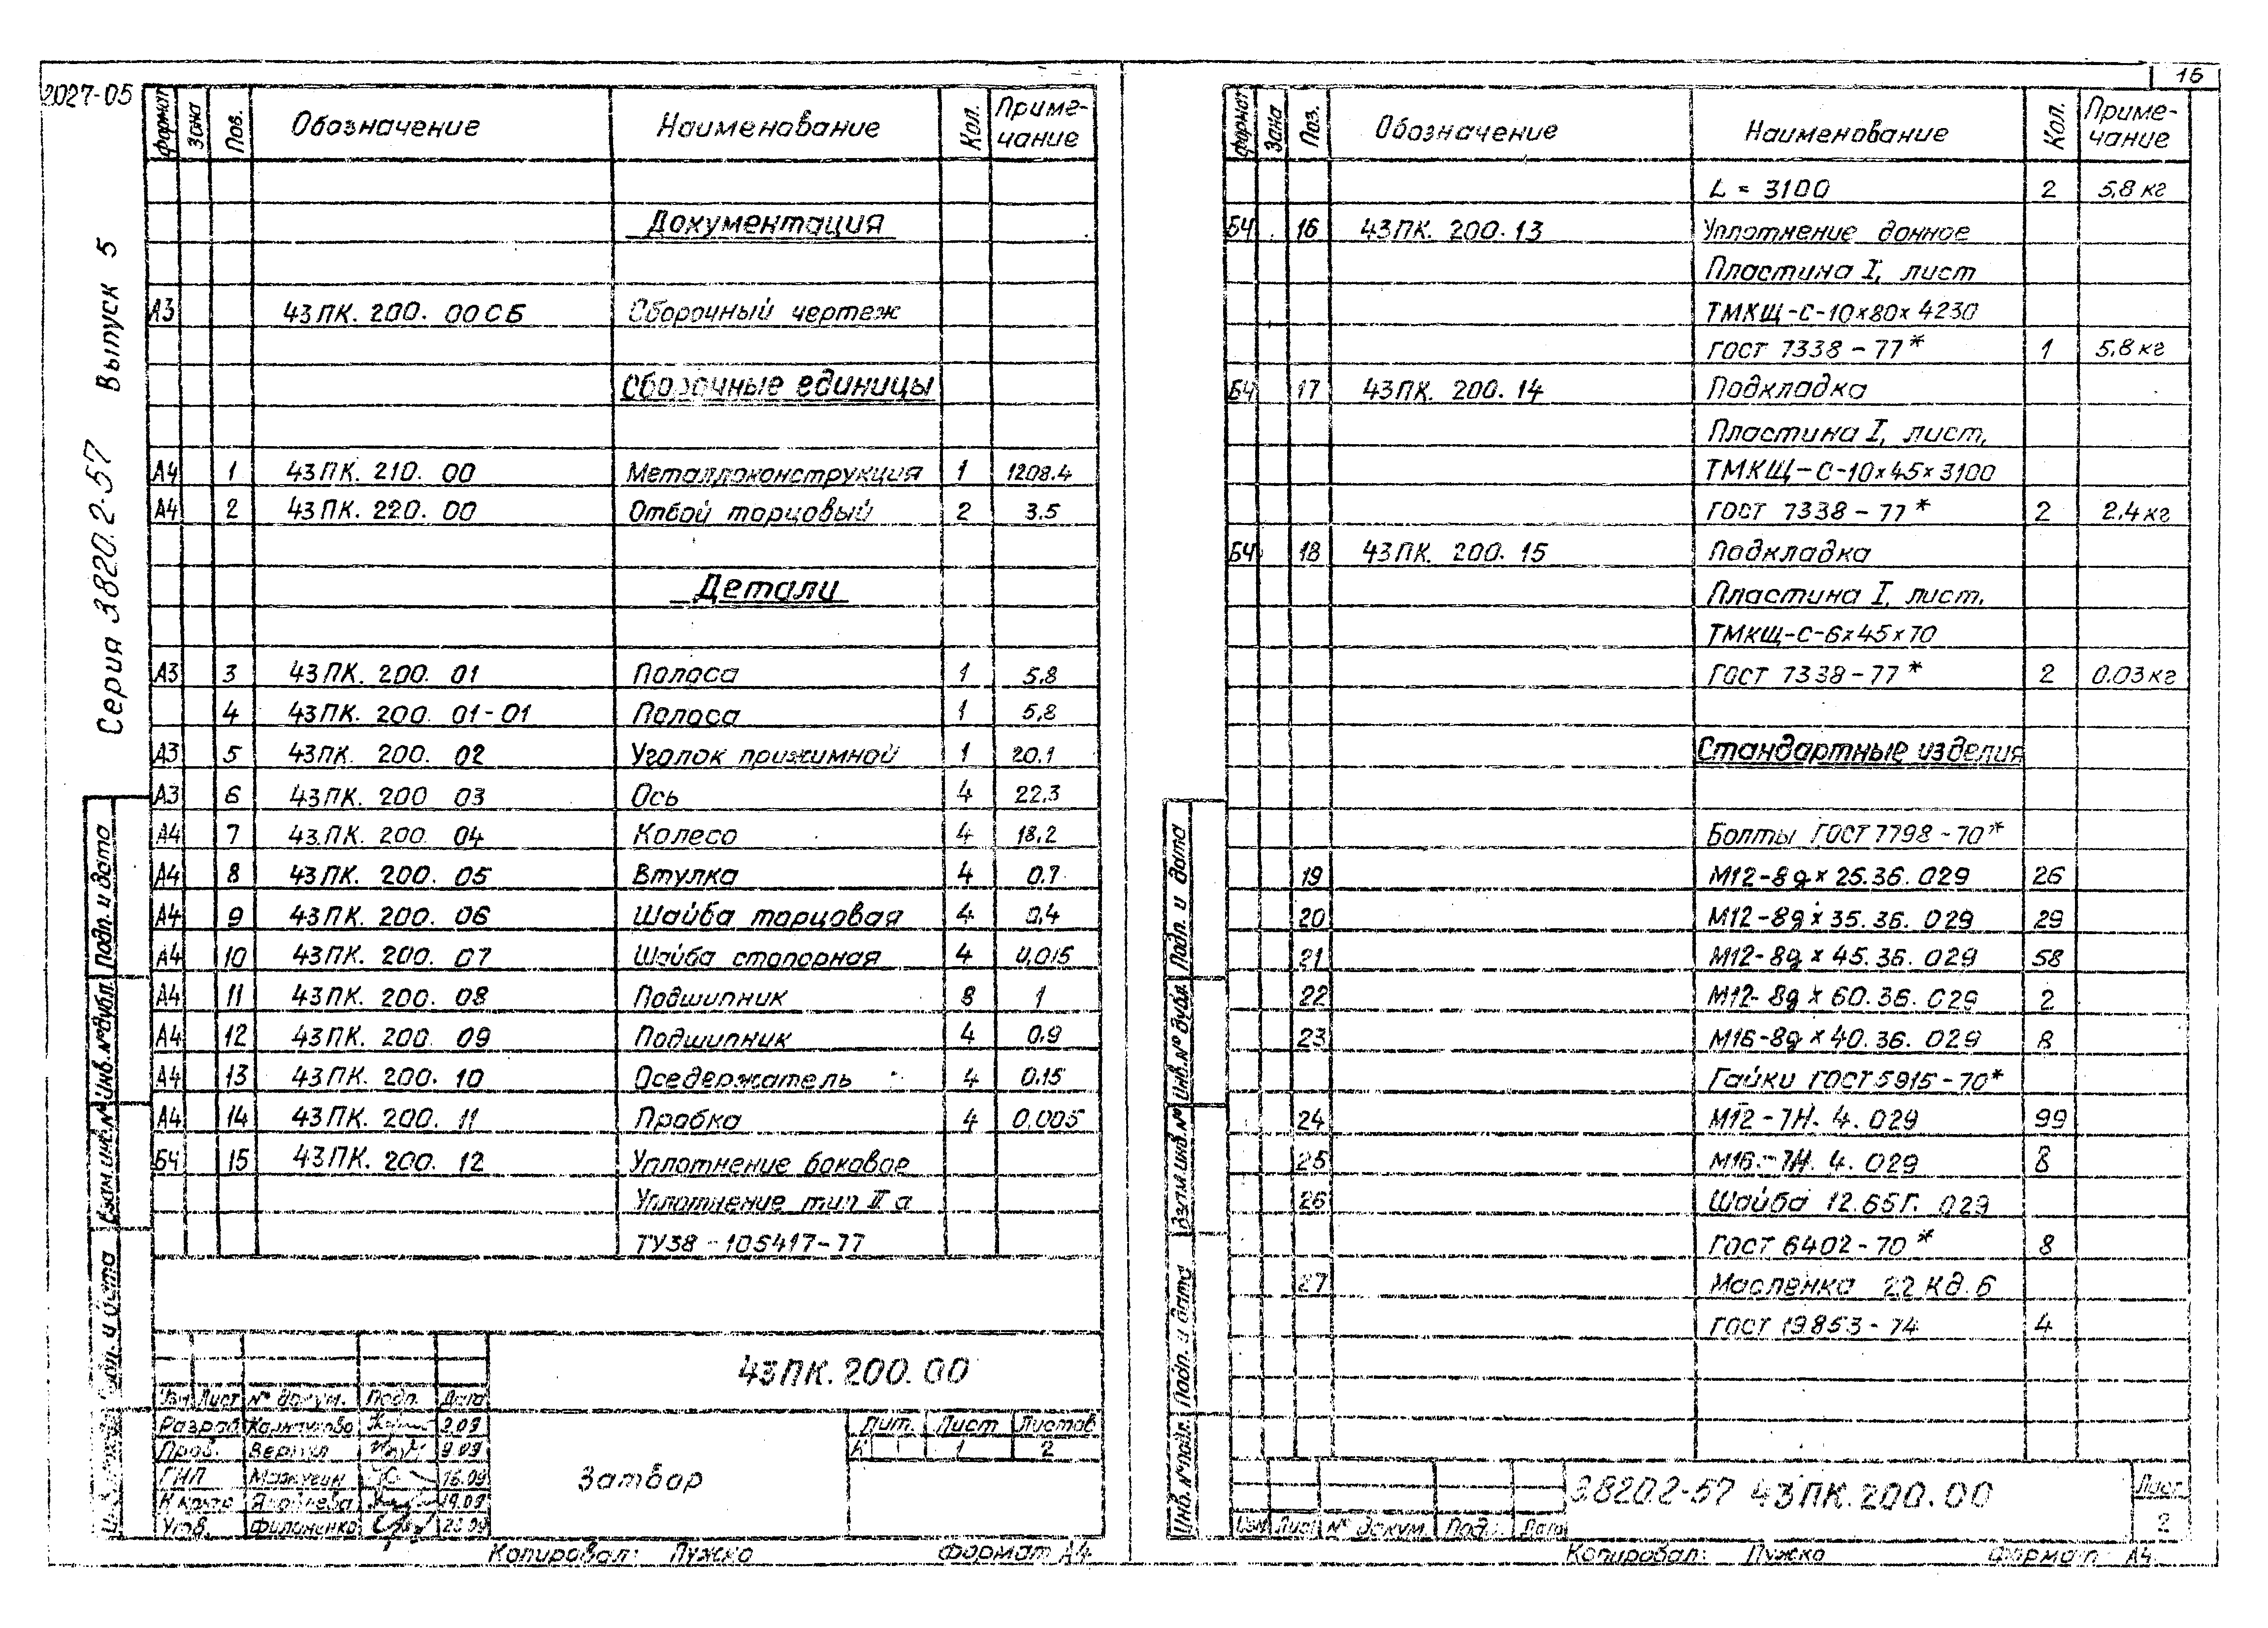 2027-05
Серия 3820.2-57 Выпуск 5
Формат Зона Поз. Обозначение Наименование Кол. Примечание
Документация
А3 43ПК. 200. 00СБ Сборочный чертеж
Сборочные единицы
А4 1 43ПК. 210. 00 Металлоконструкция 1 1208.4
А4 2 43ПК. 220. 00 Отбой торцовый 2 3.5
Детали
А3 3 43ПК. 200. 01 Полоса 1 5.8
4 43ПК. 200. 01-01 Полоса 1 5,8
А3 5 43ПК. 200. 02 Уголок прижимной 1 20.1
А3 6 43ПК. 200 03 Ось 4 22.3
А4 7 43ПК. 200. 04 Колесо 4 18,2
А4 8 43ПК. 200. 05 Втулка 4 0.7
А4 9 43ПК. 200. 06 Шайба торцовая 4 0,4
А4 10 43ПК. 200. 07 Шайба стопорная 4 0,015
А4 11 43ПК. 200. 08 Подшипник 8 1
А4 12 43ПК. 200. 09 Подшипник 4 0.9
А4 13 43ПК. 200. 10 Оседержатель 4 0.15
А4 14 43ПК. 200. 11 Пробка 4 0,005
БЧ 15 43ПК. 200. 12 Уплотнение боковое
Уплотнение тип II а
ТУ38-105417-77
43ПК. 200. 00
Изм Лист № докум. Подп. Дата
Разраб. 9.09
Пров. 9.09
ГИП 16.09
Н.контр Яковлева 19.09
Утв. Филоненко 26.09
Затвор
Лит. Лист Листов
1 2
Копировал: Пужко Формат А4
Подп. и дата
Инв. № дубл.
Взам. инв. №
Подп. и дата
16
Формат Зона Поз. Обозначение Наименование Кол. Примечание
L = 3100 2 5,8 кг
БЧ 16 43ПК. 200. 13 Уплотнение донное
Пластина I, лист
ТМКЩ-С-10х80х4230
ГОСТ 7338-77* 1 5,8 кг
БЧ 17 43ПК. 200. 14 Подкладка
Пластина I, лист,
ТМКЩ-С-10х45х3100
ГОСТ 7338-77* 2 2.4 кг
БЧ 18 43ПК. 200. 15 Подкладка
Пластина I, лист.
ТМКЩ-С-6х45х70
ГОСТ 7338-77* 2 0.03 кг
Стандартные изделия
Болты ГОСТ 7798-70*
19 М12-8g х 25.36. 029 26
20 М12-8g х 35.36. 029 29
21 М12-8g х 45.36. 029 58
22 М12-8g х 60.36. 029 2
23 М16-8g х 40.36. 029 8
Гайки ГОСТ 5915-70*
24 М12-7Н. 4. 029 99
25 М16.-7Н. 4. 029 8
26 Шайба 12.65Г. 029
ГОСТ 6402-70* 8
27 Масленка 2.2 Кд. 6
ГОСТ 19853-74 4
3.820.2-57 43ПК. 200. 00
Лист
2
Изм Лист № докум. Подп. Дата
Копировал: Пужко Формат А4
Подп. и дата
Инв. № дубл.
Взам. инв. №
Подп. и дата
Инв. № подл.